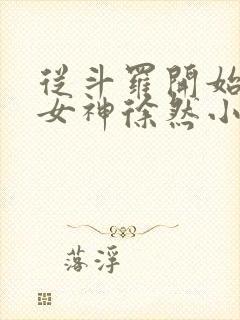 從斗羅開始
女神徐然小
落浮